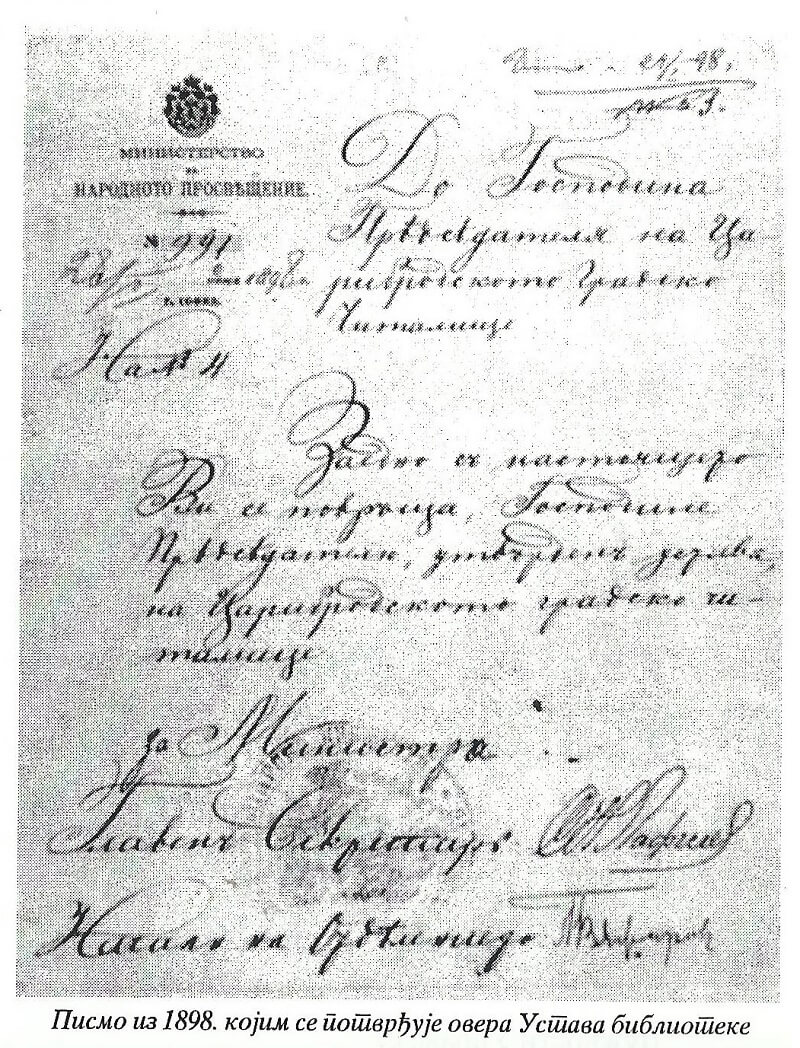 МИНИСТЕРСТВО
НА
НАРОДНОТО ПРОСВѢЩЕНИЕ.
№ 991
г. СОФИЯ.
До Господина
Прѣдсѣдателя на Ца-
рибродското Градско
Читалище
На № 4
Заедно съ настоящето
Ви се повръща, Господине
Прѣдсѣдателю, утвърденъ устава,
на Царибродското градско чи-
талище
за Министра
Главенъ Секретарь
Начало на Отдѣлението
Писмо из 1898. којим се потврђује овера Устава библиотеке